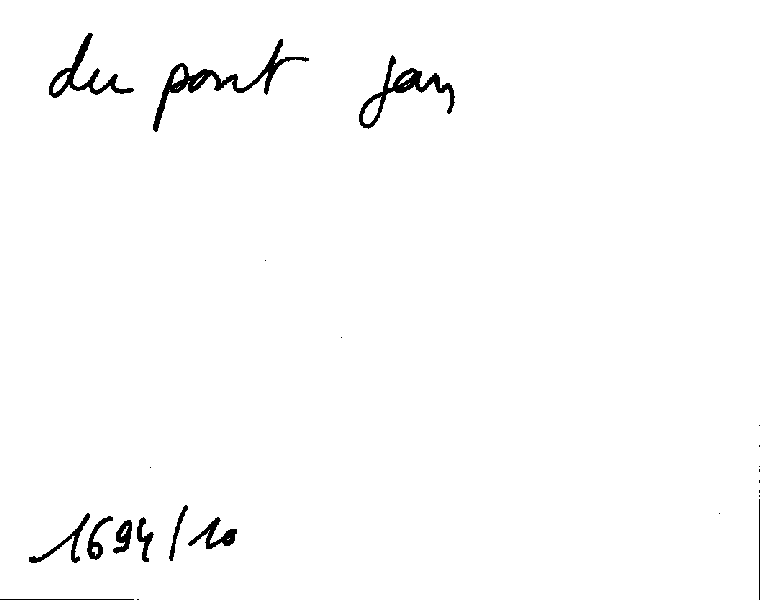 du pont jan
1694/10